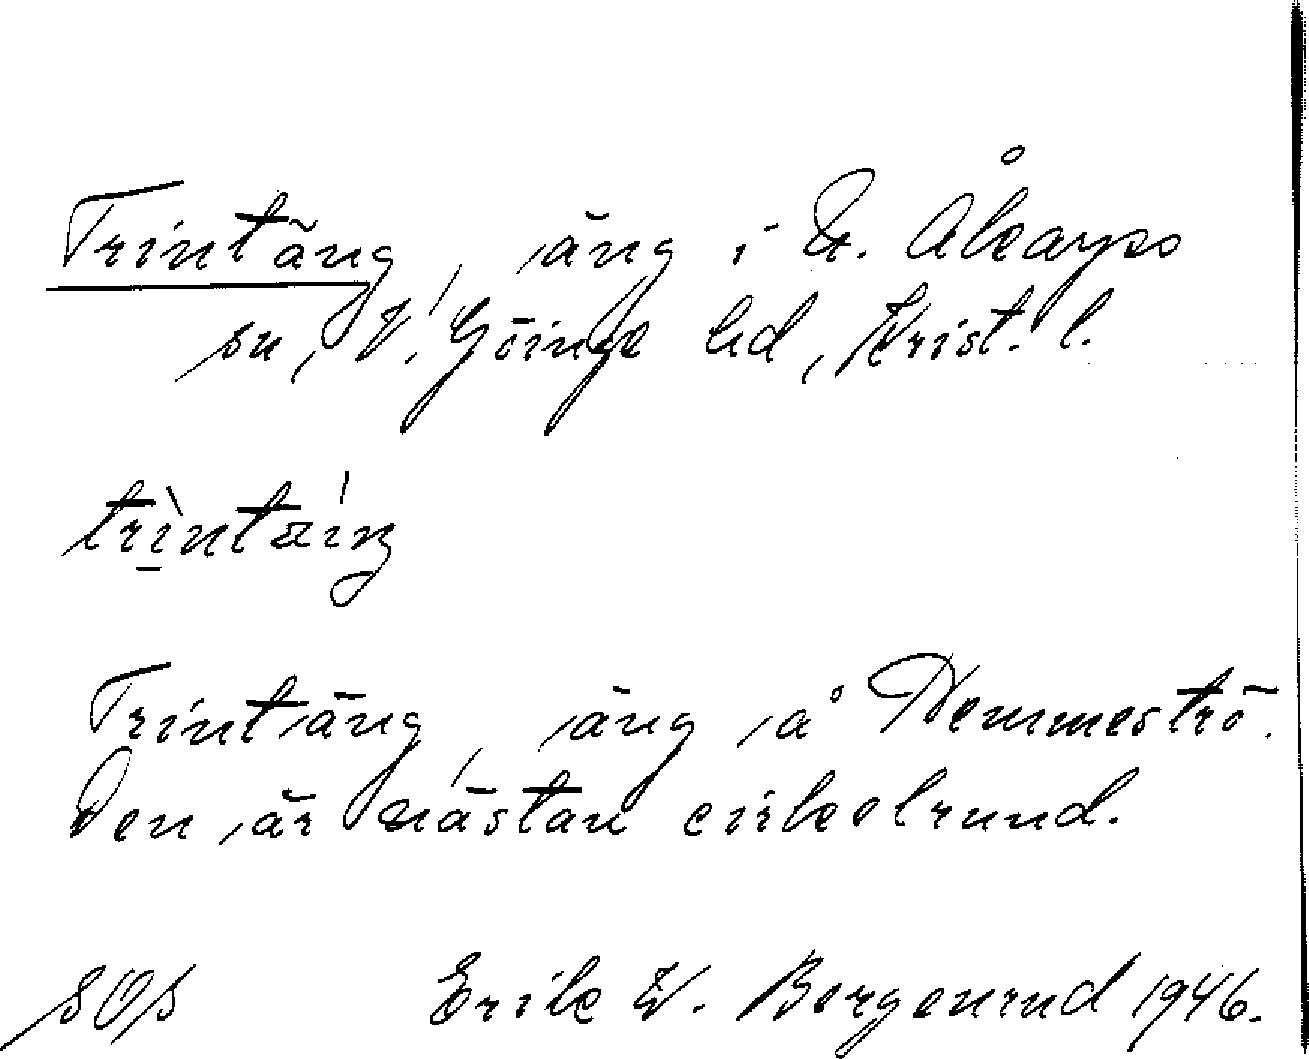 Trintäng, äng i N. Åkarps
sn, V. Göinge hd, Krist. l.
trìntæ̀ŋ
Trintäng, äng å Hemmeströ.
Den är nästan cirkelrund.
SOS Erik W. Bergenrud 1946.